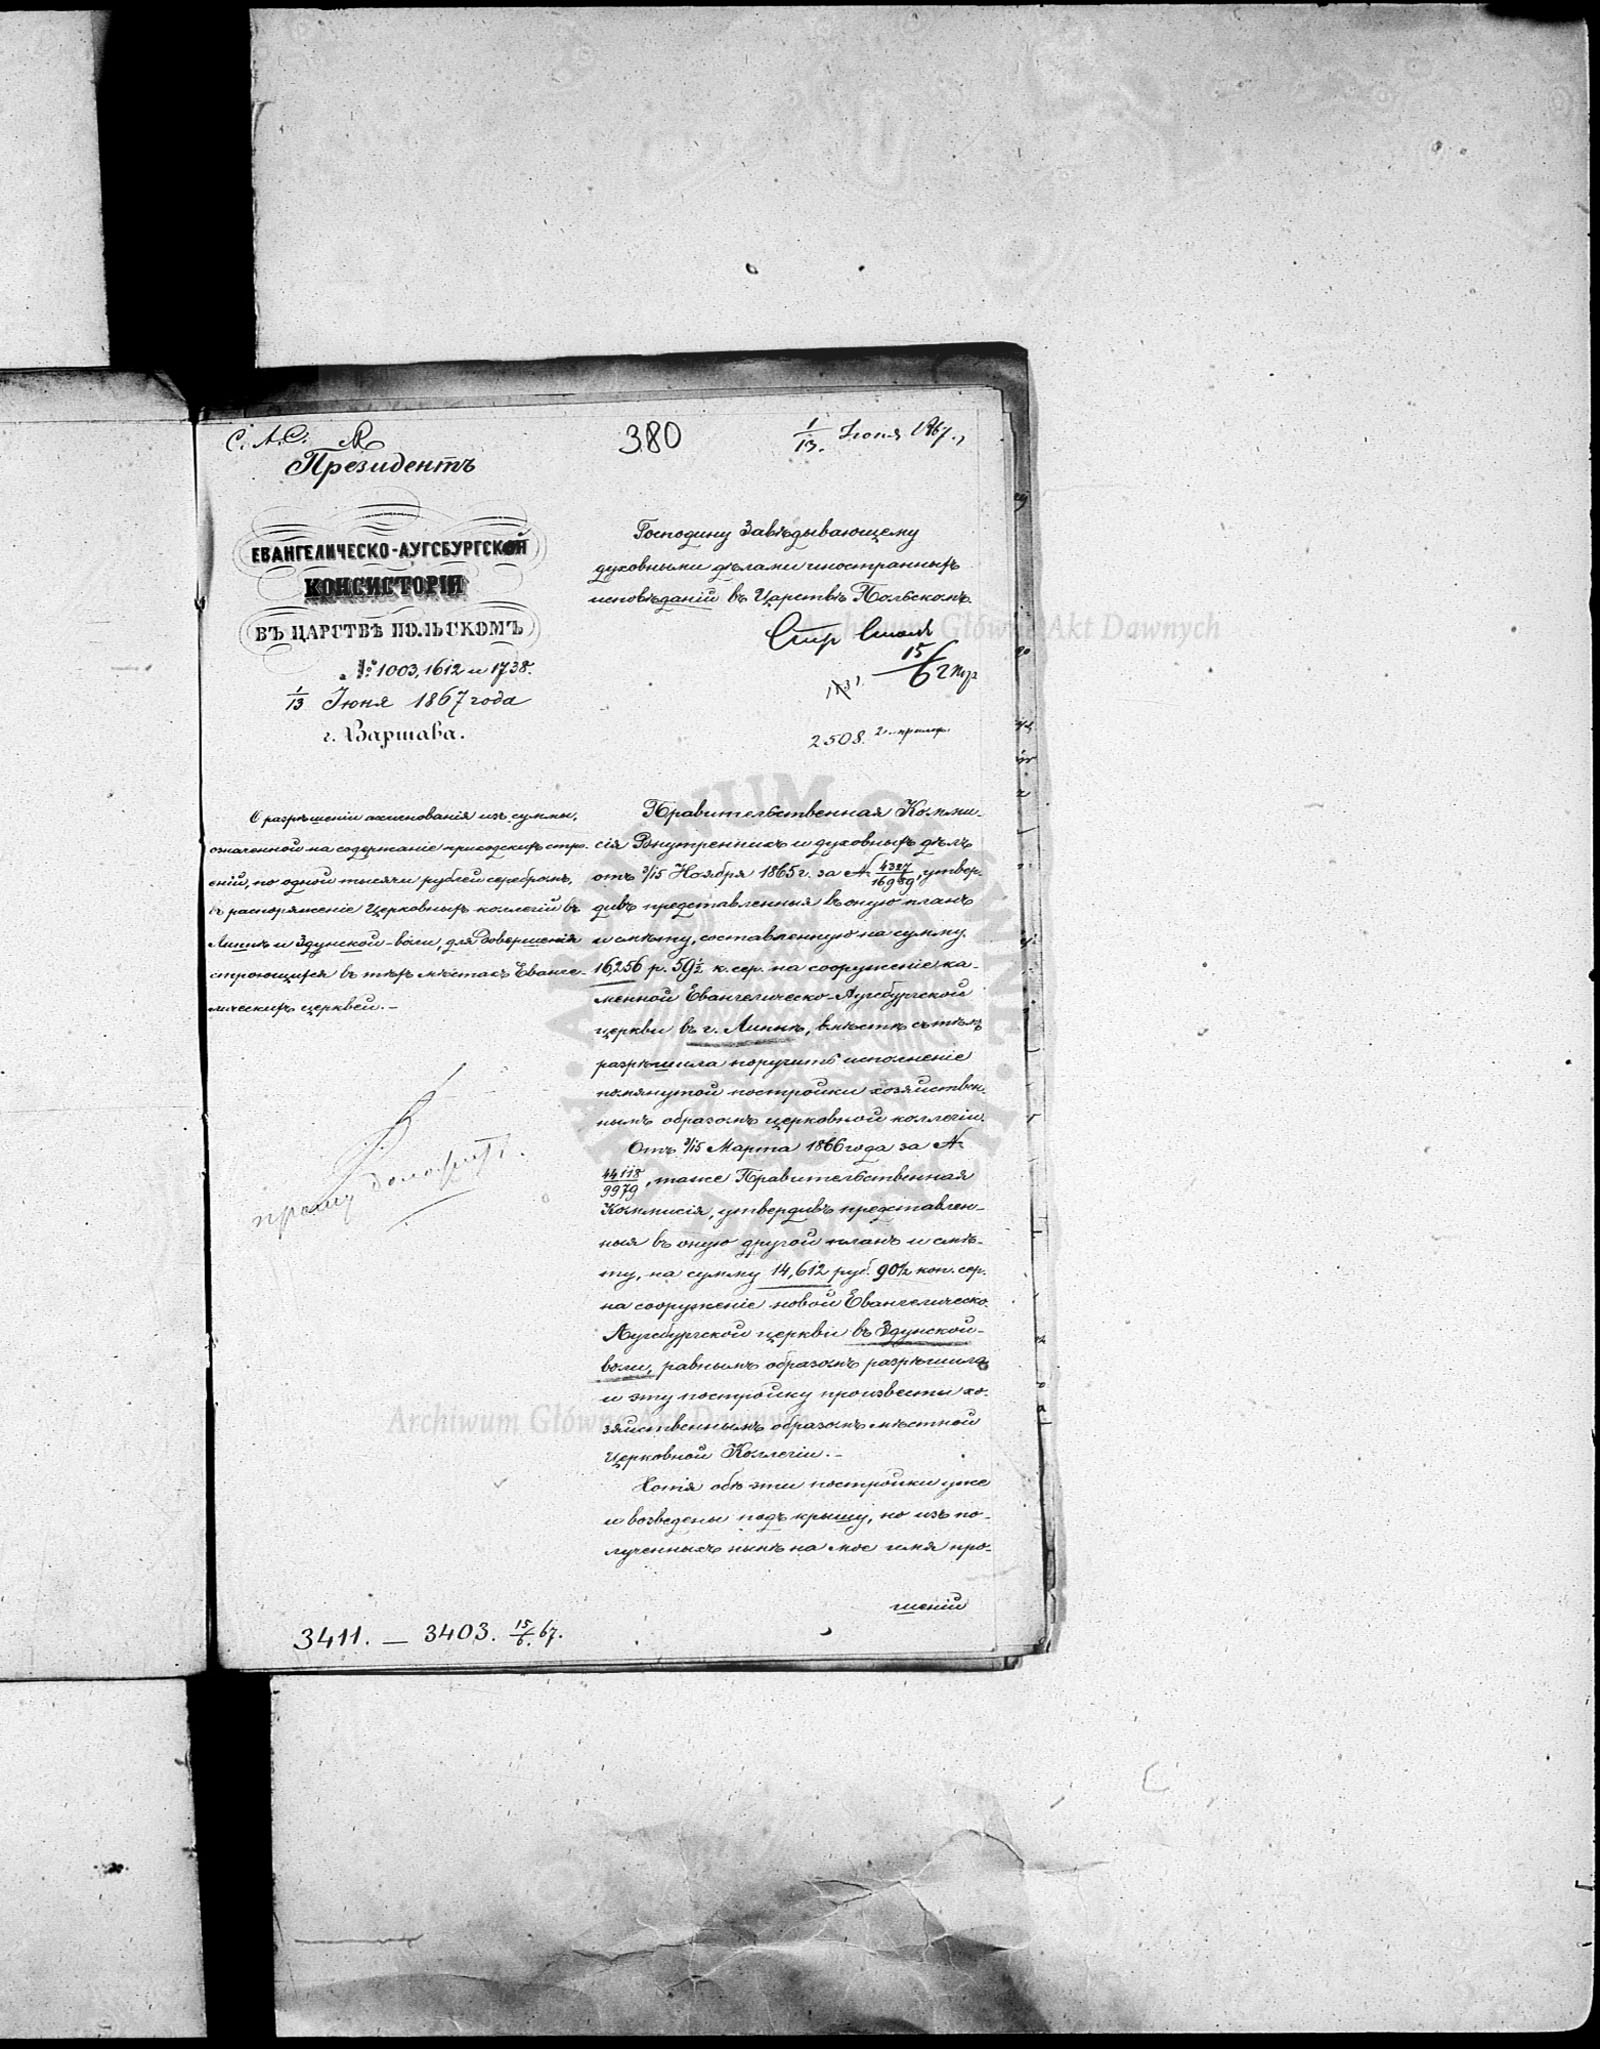 С. А. С.
380
1/13. Іюня 1867 г.
Президентъ
ЕВАНГЕЛИЧЕСКО-АУГСБУРГСКОЙ
КОНСИСТОРІИ
ВЪ ЦАРСТВѢ ПОЛЬСКОМЪ
№ 1003, 1612 и 1738.
1/13 Іюня 1867 года
г. Варшава.
Господину Завѣдывающему
духовными дѣлами иностранныхъ
исповѣданій въ Царствѣ Польскомъ.
15/6
2508.
О разрѣшеніи ассигнованія изъ суммы,
означенной на содержаніе приходскихъ стро-
еній, по одной тысячи рублей серебромъ,
въ распоряженіе Церковныхъ коллегій въ
Липнѣ и Здунской-воли, для довершенія
строющихся въ тѣхъ мѣстахъ Еванге-
лическихъ церквей.-
прошу доложить.
Правительственная Комми-
сія Внутреннихъ и духовныхъ дѣлъ
отъ 3/15 Ноября 1865 г. за № 4327/16989, утвер-
дивъ представленныя въ оную планъ
и смѣту, составленную на сумму
16,256 р. 59½ к. сер. на сооруженіе ка-
менной Евангелическо-Аугсбургской
церкви въ г. Липнѣ, вмѣстѣ съ тѣмъ
разрѣшила поручить исполненіе
помянутой постройки хозяйствен-
нымъ образомъ церковной коллегіи.
Отъ 3/15 Марта 1866 года за №
44118/9979, таже Правительственная
Коммисія, утвердивъ представлен-
ныя въ оную другой планъ и смѣ-
ту, на сумму 14,612 руб. 90½ коп. сер.
на сооруженіе новой Евангелическо-
Аугсбургской церкви въ Здунской-
воли, равнымъ образомъ разрѣшила
и эту постройку произвести хо-
зяйственнымъ образомъ мѣстной
Церковной Коллегіи.-
Хотя обѣ эти постройки уже
и возведены подъ крышу, но изъ по-
лученныхъ нынѣ на мое имя про-
шеній
3411. — 3403. 15/6. 67.
Archiwum Główne Akt Dawnych
Archiwum Główne Akt Dawnych
ARCHIWUM GŁÓWNE AKT DAWNYCH